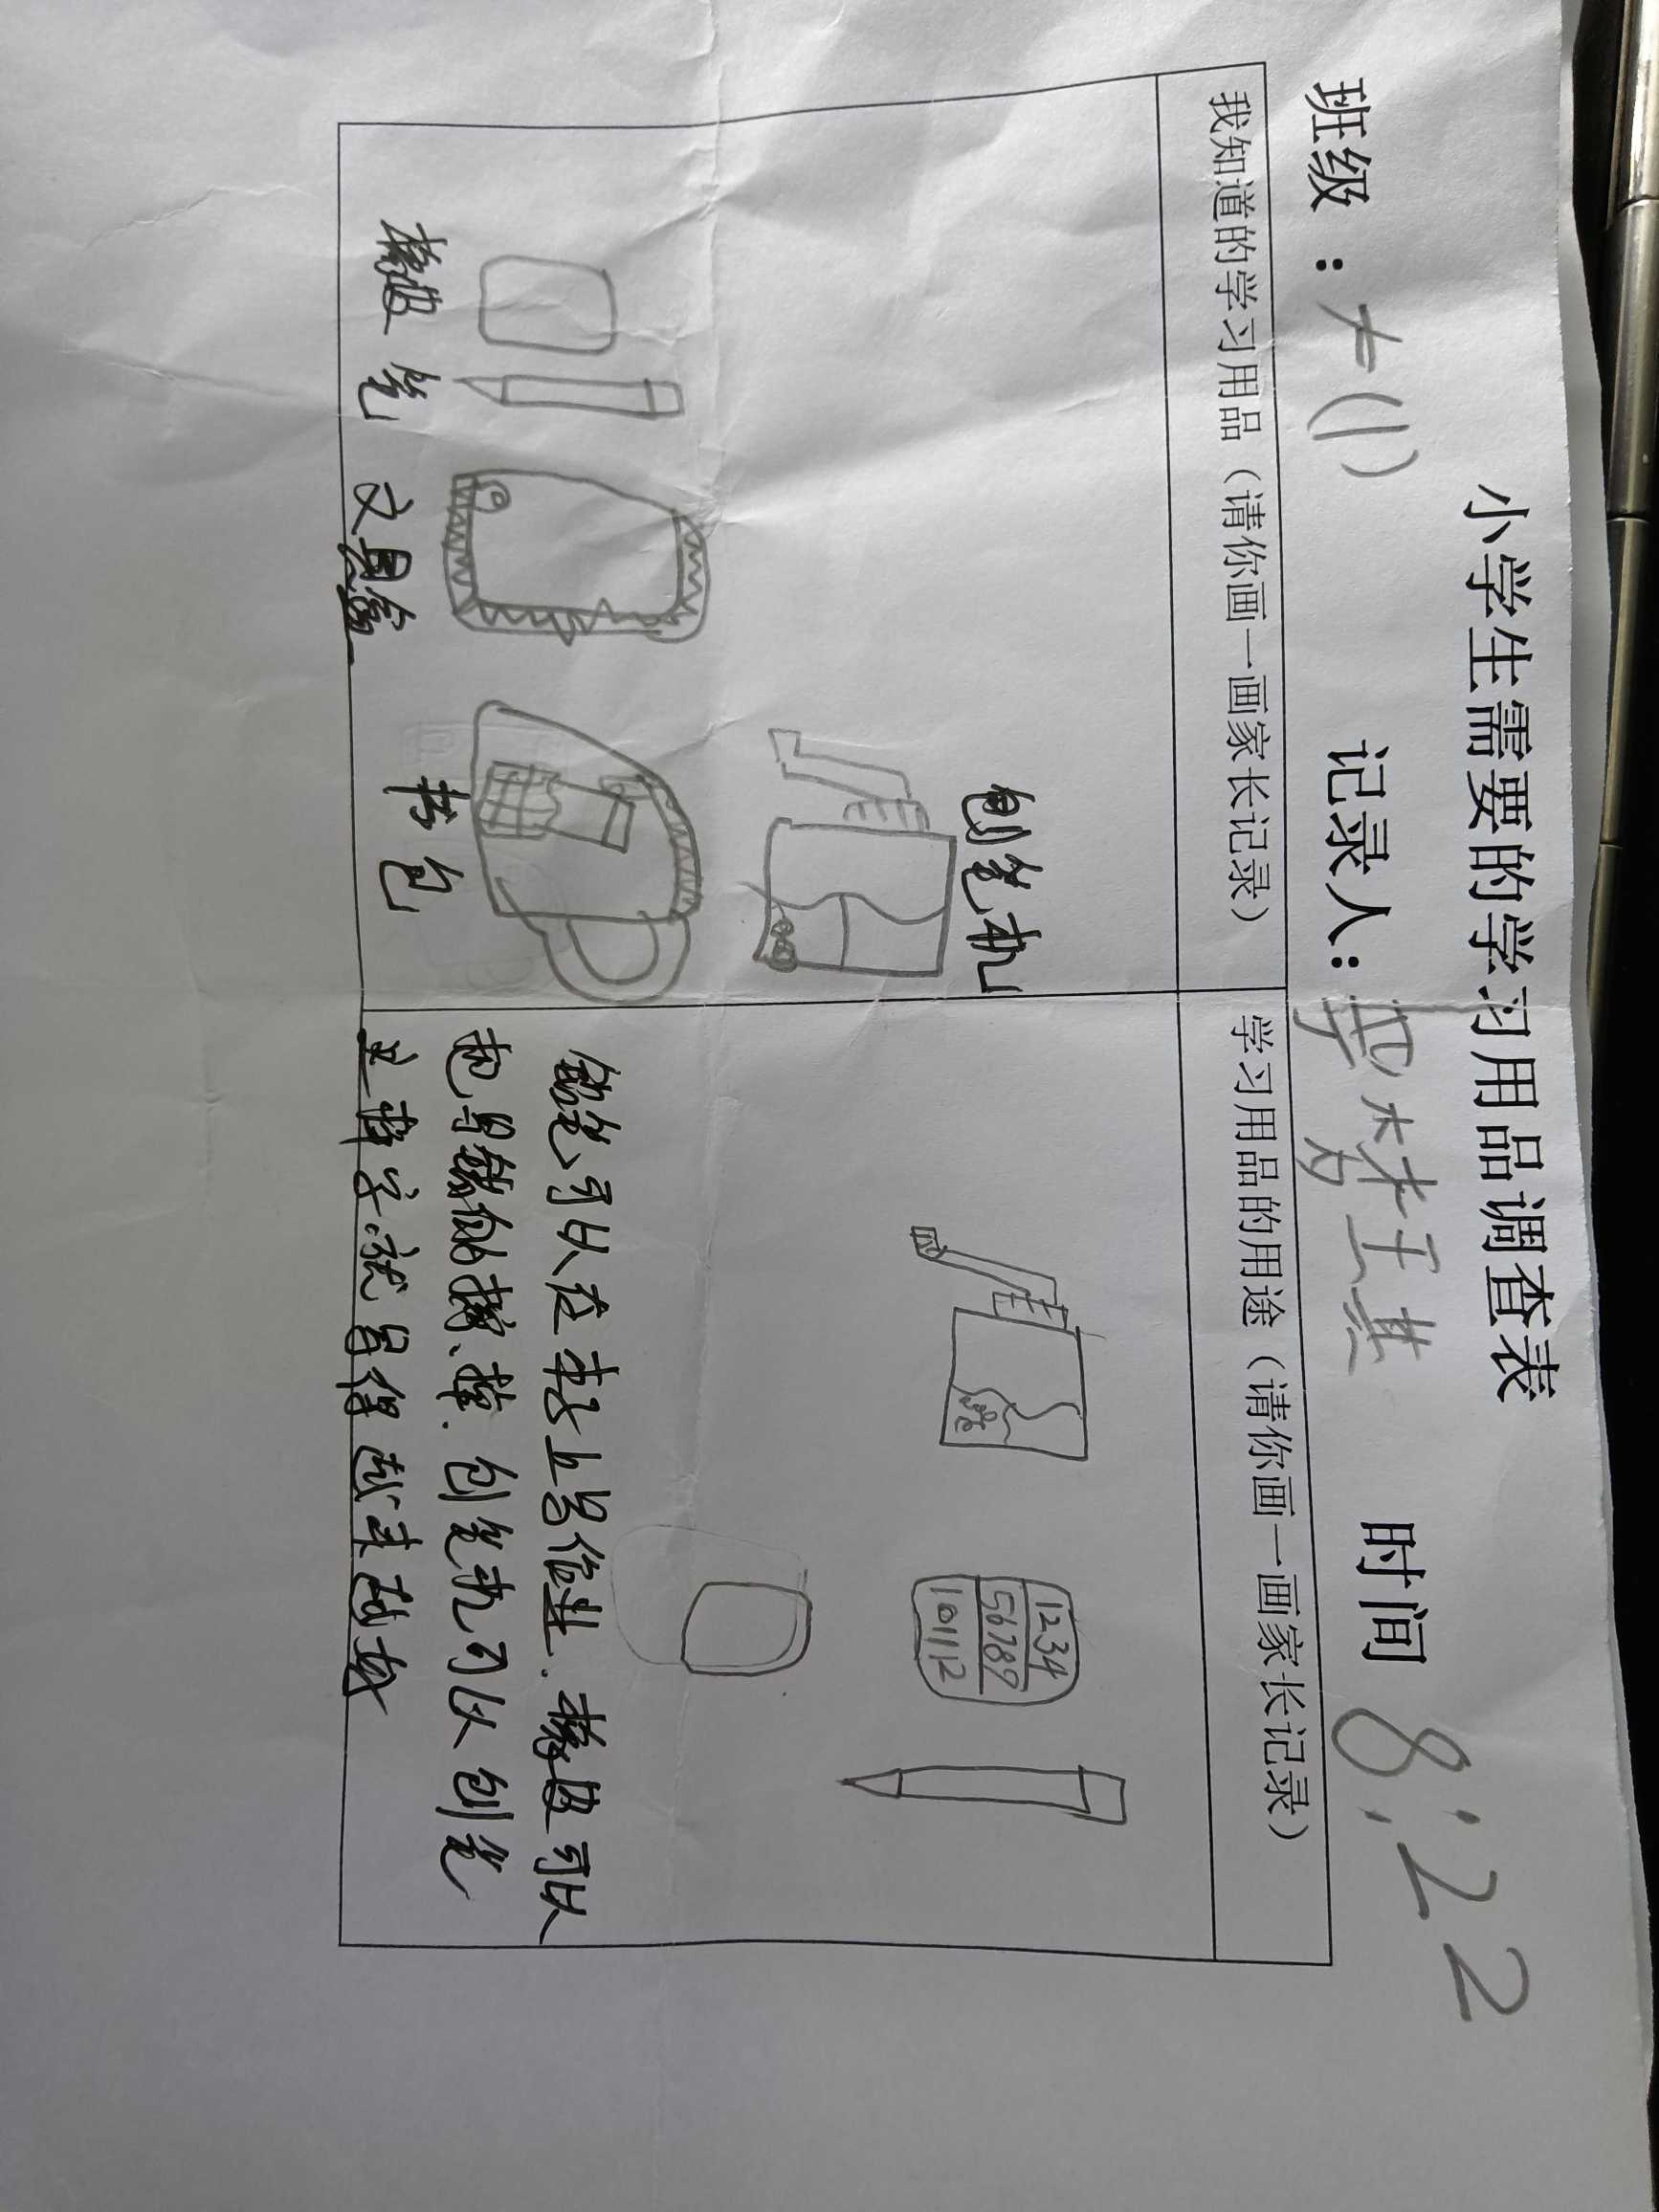 小学生需要的学习用品调查表
班级：大(1) 记录人： 时间 8:22
我知道的学习用品（请你画一画家长记录）
学习用品的用途（请你画一画家长记录）
刨笔机
橡皮 笔 文具盒 书包
1234
56789
101112
铅笔可以在本子上写作业.橡皮可以
把写错的擦、掉.刨笔机可以刨笔
这样字就写得越来越好